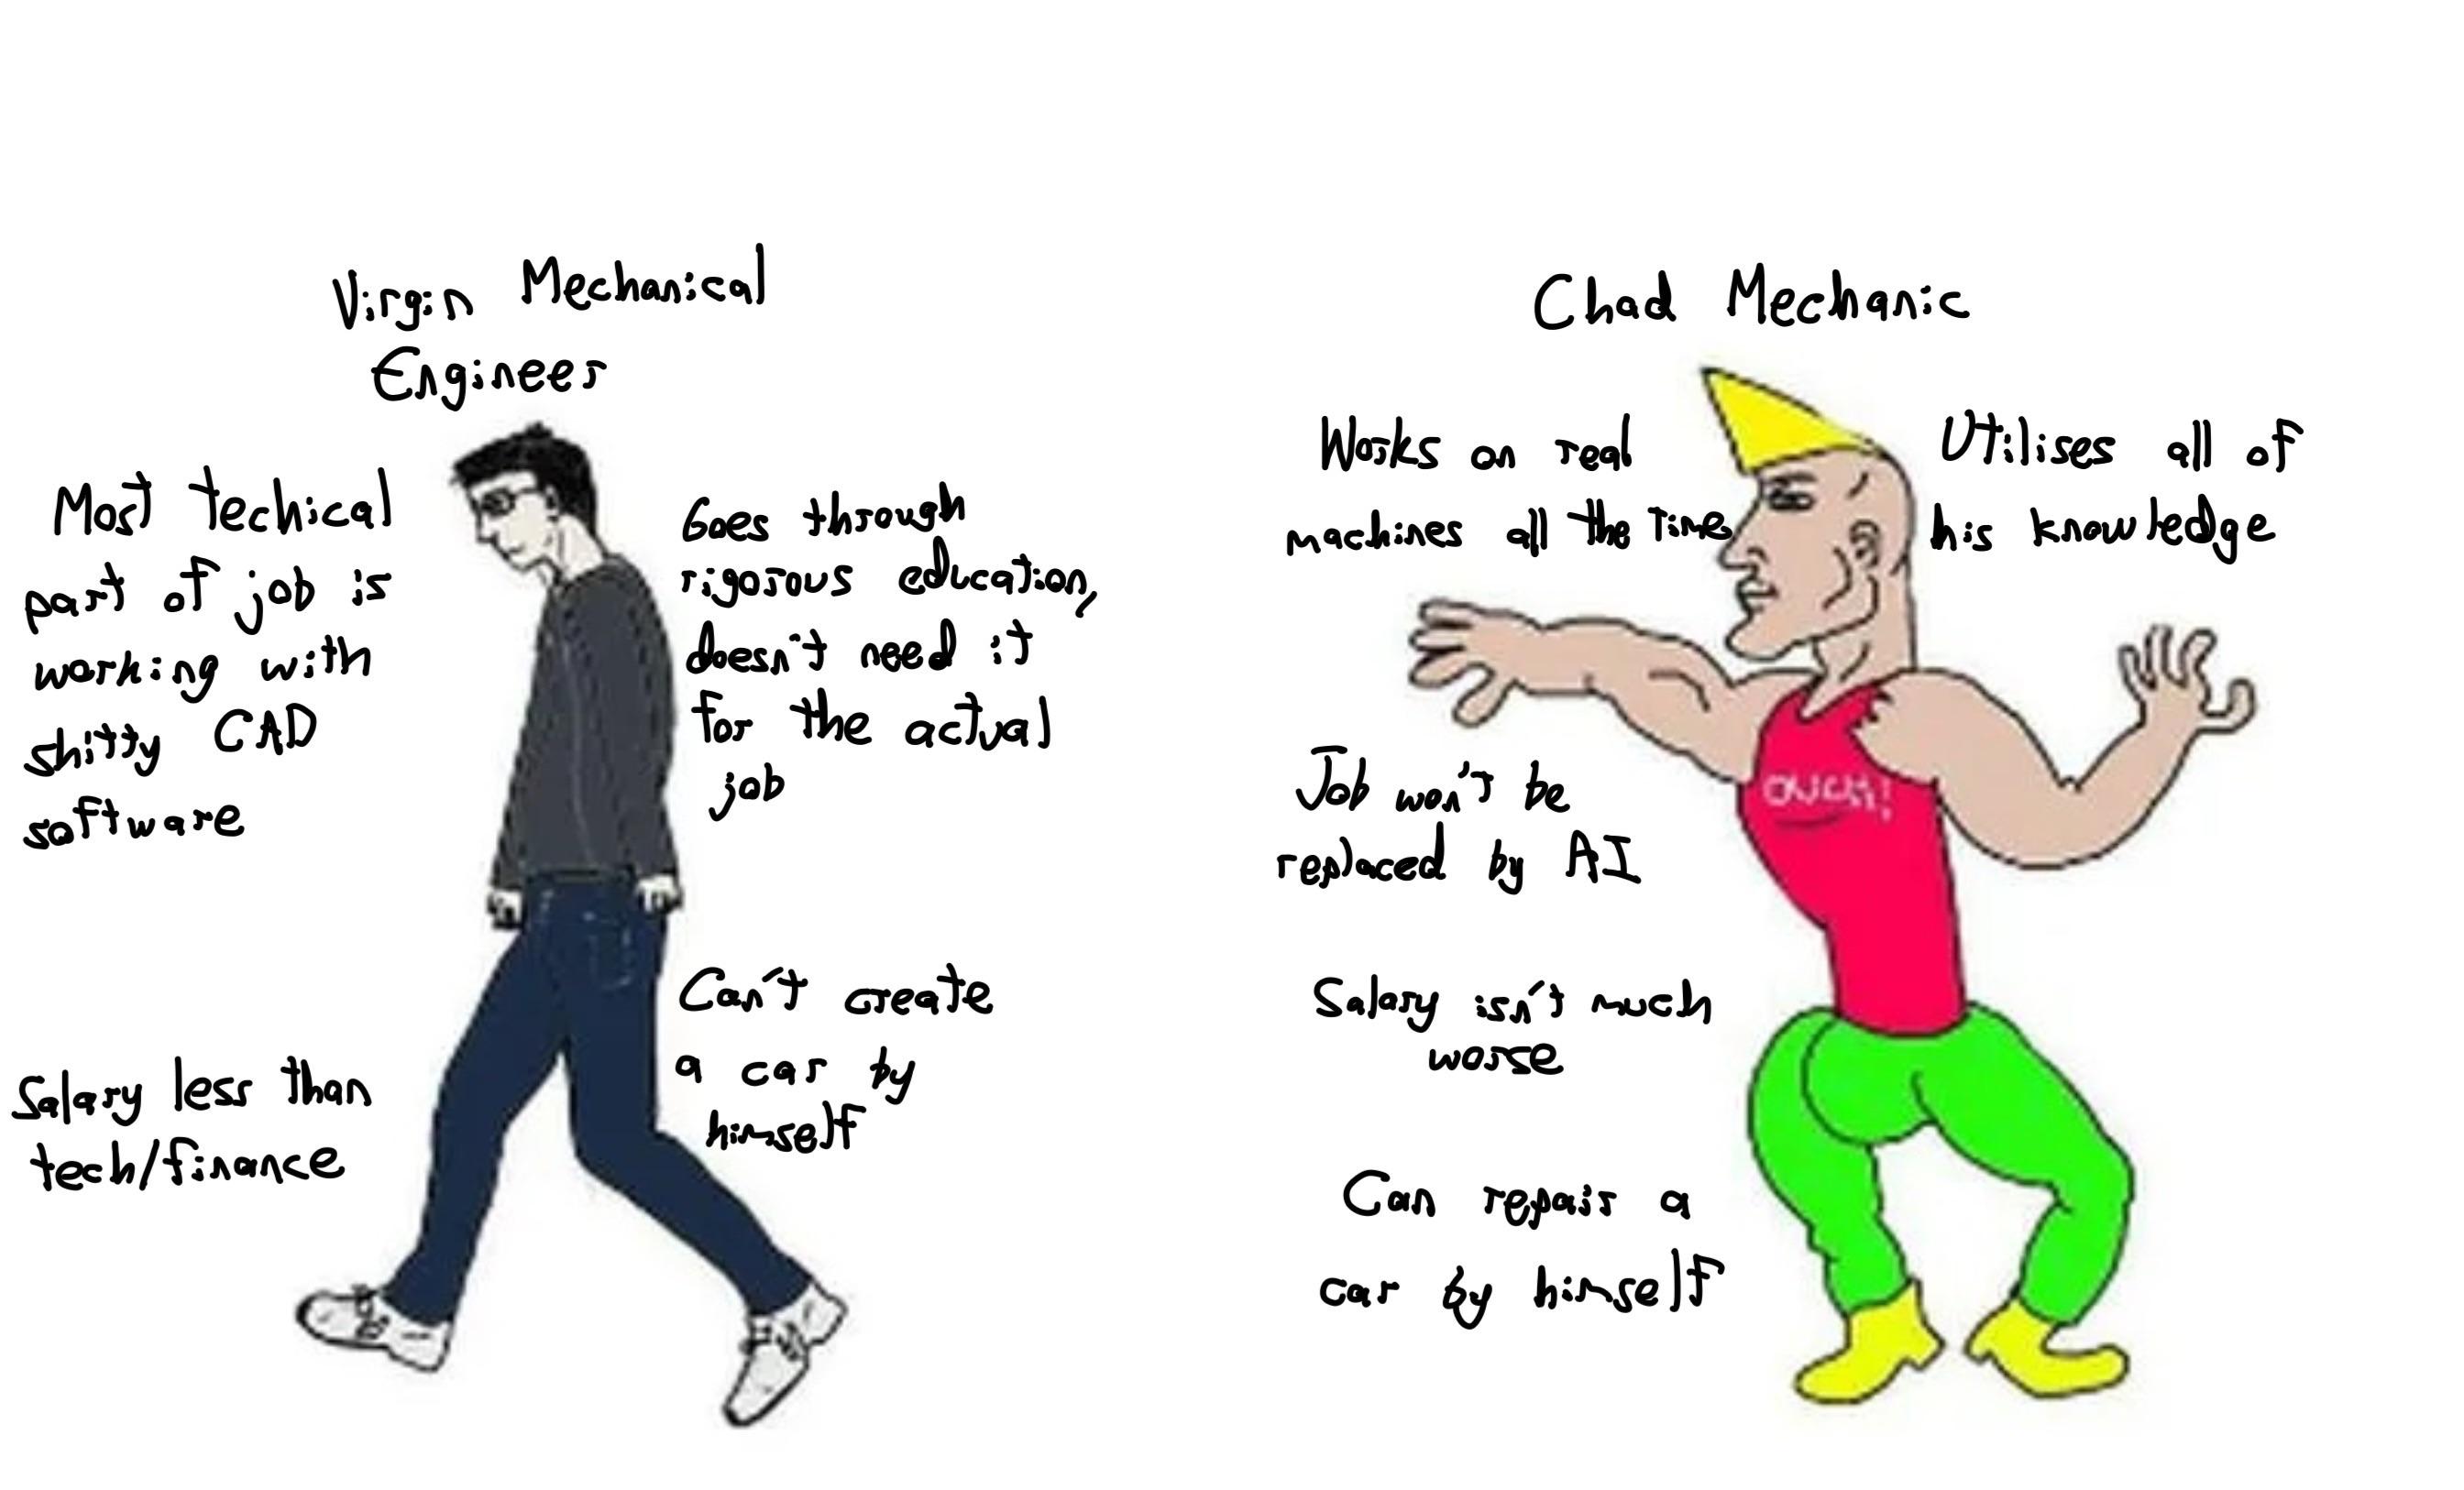 Virgin Mechanical
Engineer
Most techical
part of job is
working with
shitty CAD
software
Goes through
rigorous education,
doesn't need it
for the actual
job
Salary less than
tech/finance
Can't create
a car by
himself
Chad Mechanic
Works on real
machines all the Time
Utilises all of
his knowledge
OUCH!
Job won't be
replaced by AI
Salary isn't much
worse
Can repair a
car by himself